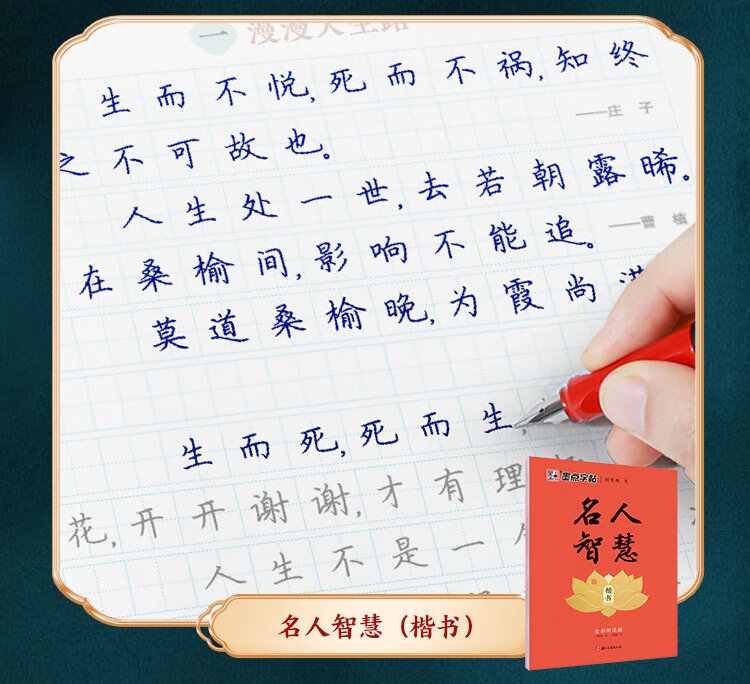 一 漫漫人生路
生而不悦，死而不祸，知终
——庄子
之不可故也。
人生处一世，去若朝露晞。
——曹植
在桑榆间，影响不能追。
莫道桑榆晚，为霞尚满
生而死，死而生，
花，开开谢谢，才有理
人生不是一个
墨点字帖
名人
智慧
楷书
名人智慧（楷书）